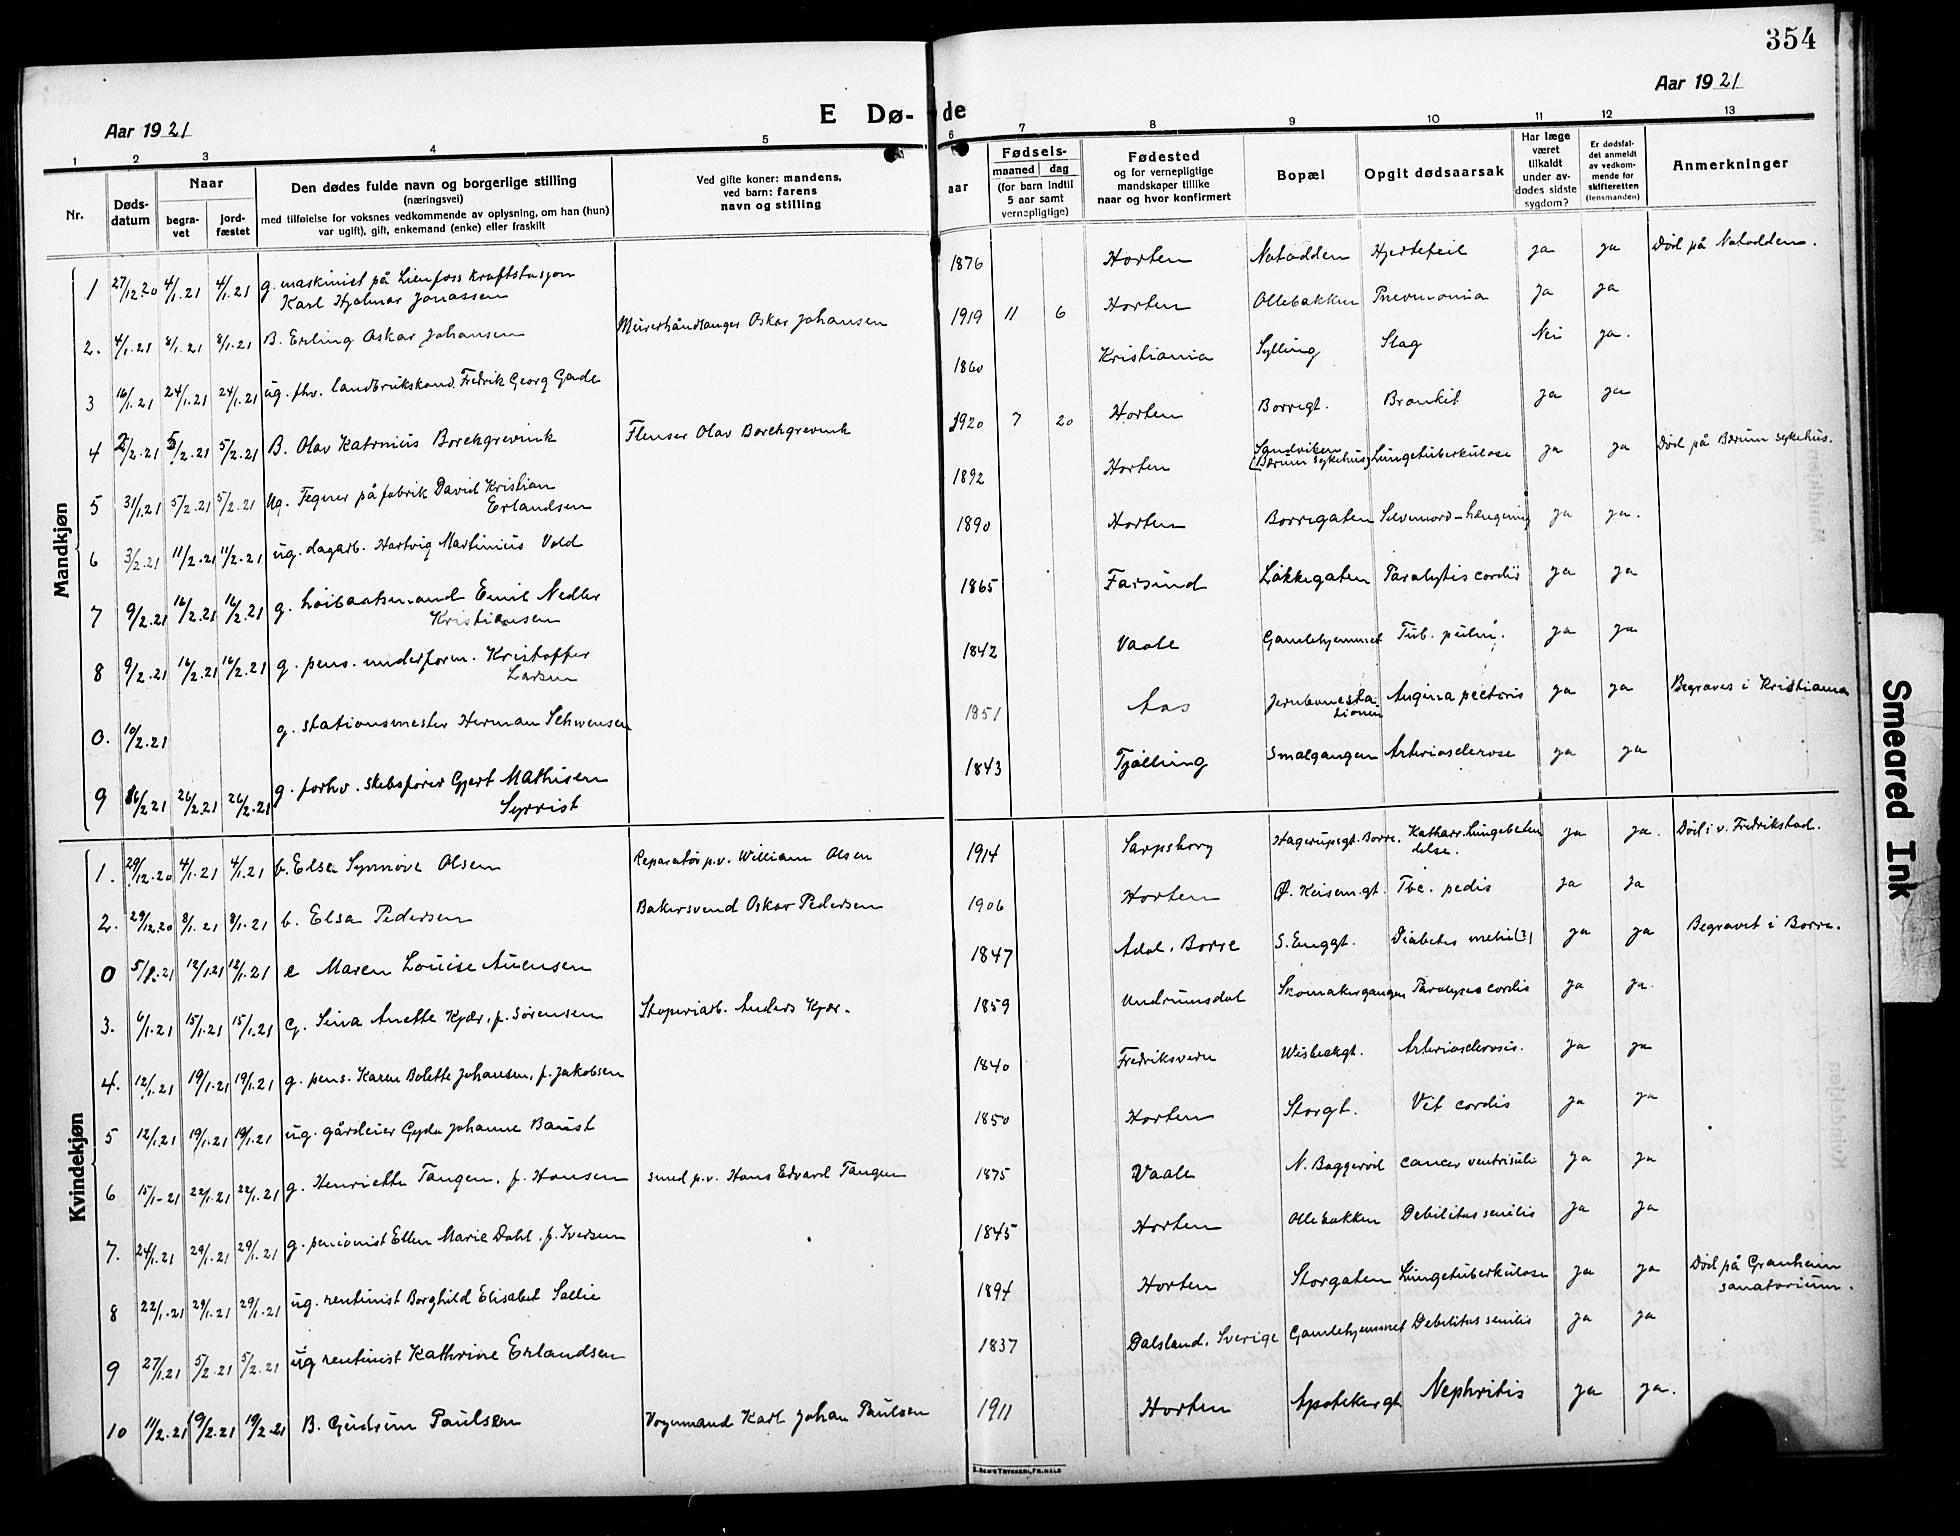 354
Aar 1921
E Dø-de
Aar 1921
1 2 3 4 5 6 7 8 9 10 11 12 13
Nr.
Døds-
datum
Naar
begra-
vet
jord-
fæstet
Den dødes fulde navn og borgerlige stilling
(næringsvei)
med tilføielse for voksnes vedkommende av oplysning, om han (hun)
var ugift), gift, enkemand (enke) eller fraskilt
Ved gifte koner: mandens,
ved barn: farens
navn og stilling
aar
Fødsels-
maaned dag
(for barn indtil
5 aar samt
vernepligtige)
Fødested
og for vernepligtige
mandskaper tillike
naar og hvor konfirmert
Bopæl
Opgit dødsaarsak
Har læge
været
tilkaldt
under av-
dødes sidste
sygdom?
Er dødsfal-
det anmeldt
av vedkom-
mende for
skifteretten
(lensmanden)
Anmerkninger
Mandkjøn
1 27/12.20 4/1.21 4/1.21 g. maskinist på Lienfoss kraftstasjon 1876 Horten Notodden Hjertefeil ja ja Död på Notodden.
Karl Hjalmar Jonassen
2. 4/1.21 8/1.21 8/1.21 B. Erling Oskar Johansen Murerhåndlanger Oskar Johansen 1919 11 6 Horten Ollebakken Pneumonia ja ja
3 16/1.21 24/1.21 24/1.21 ug. fhv. landbrukskand. Fredrik Georg Gade 1860 Kristiania Sylling Slag Nei ja.
4 2/2.21 5/2.21 5/2.21 B. Olav Katrnius Borchgrevink Flenser Olav Borchgrevink 1920 7 20 Horten Borregt. Bronkit ja ja
5 31/1.21 5/2.21 5/2.21 Ug. Tegner på fabrik David Kristian 1892 Horten Sandviken (Bærum sykehus) Lungetuberkulose ja ja Död på Bærum sykehus.
Erlandsen
6 3/2.21 11/2.21 11/2.21 ug. dagarb. Hartvig Martinius Vold 1890 Horten Borregaten Selvmord-hængning ja ja.
7 9/2.21 16/2.21 16/2.21 g. höibaatsmand Emil Nedler 1865 Farsund Løkkegaten Paralytis cordis ja ja
Kristiansen
8 9/2.21 16/2.21 16/2.21 g. pens. underform. Kristoffer 1842 Vaale Gamlehjemmet Tub. pulm. ja ja
Larsen
0. 10/2.21 g. stationsmester Herman Schwensen 1851 Aas Jernbanestationen Angina pectoris ja ja Begraves i Kristiania
9 16/2.21 26/2.21 26/2.21 g. forhv. skibsförer Gjert Mathisen 1843 Tjølling Smalgangen Arteriosclerose ja ja
Syrrist
Kvindekjøn
1. 29/12.20 4/1.21 4/1.21 b. Elsa Synnöve Olsen Reparatör p.v. William Olsen 1914 Sarpsborg Hagerupsgt. Borre. Katharr. Lungebetændelse. ja ja. Död i v. Fredrikstad.
2. 29/12.20 8/1.21 8/1.21 b. Elsa Pedersen Bakersvend Oskar Pedersen 1906 Horten Ø. Keisem.gt Tbc. pedis ja ja
0 5/1.21 12/1.21 12/1.21 e Maren Louise Auensen 1847 Adal, Borre S. Enggt. Diabetes mellit(?) ja ja Begravet i Borre.
3. 6/1.21 15/1.21 15/1.21 g. Sina Anette Kjær, f. Sörensen Stoperiarb. Anders Kjær. 1859 Undrumsdal Skomakergangen Paralyses cordis ja ja.
4. 12/1.21 19/1.21 19/1.21 g. pens. Karen Bolette Johansen, f. Jakobsen 1840 Fredriksvern Wisbechgt. Arteriosclerosis. ja ja
5 12/1.21 19/1.21 19/1.21 ug. gårdeier Gyda Johanne Baust 1850 Horten Storgt. Vit cordis ja ja
6 15/1-21 22/1.21 22/1.21 g. Henriette Tangen, f. Hansen smed p.v. Hans Edvard Tangen 1875 Vaale N. Baggeröd cancer ventriculi ja ja
7. 24/1.21 29/1.21 29/1.21 g. pensionist Ellen Marie Dahl, f. Iversen 1845 Horten Ollebakken Debilitas senilis ja ja
8 22/1.21 29/1.21 29/1.21 ug. rentenist Borghild Elisabet Sollie 1894 Horten Storgaten Lungetuberkulose ja ja Död på Granheim
sanatorium.
9 27/1.21 5/2.21 5/2.21 ug rentinist Kathrine Erlandsen 1837 Dalsland, Sverige Gamlehjemmet Debilitas senilis ja ja
10 11/2.21 19/2.21 19/2.21 B. Gudrun Paulsen Vognmand Karl Johan Paulsen 1911 Horten Apotekergt Nephritis ja ja.
Smeared Ink